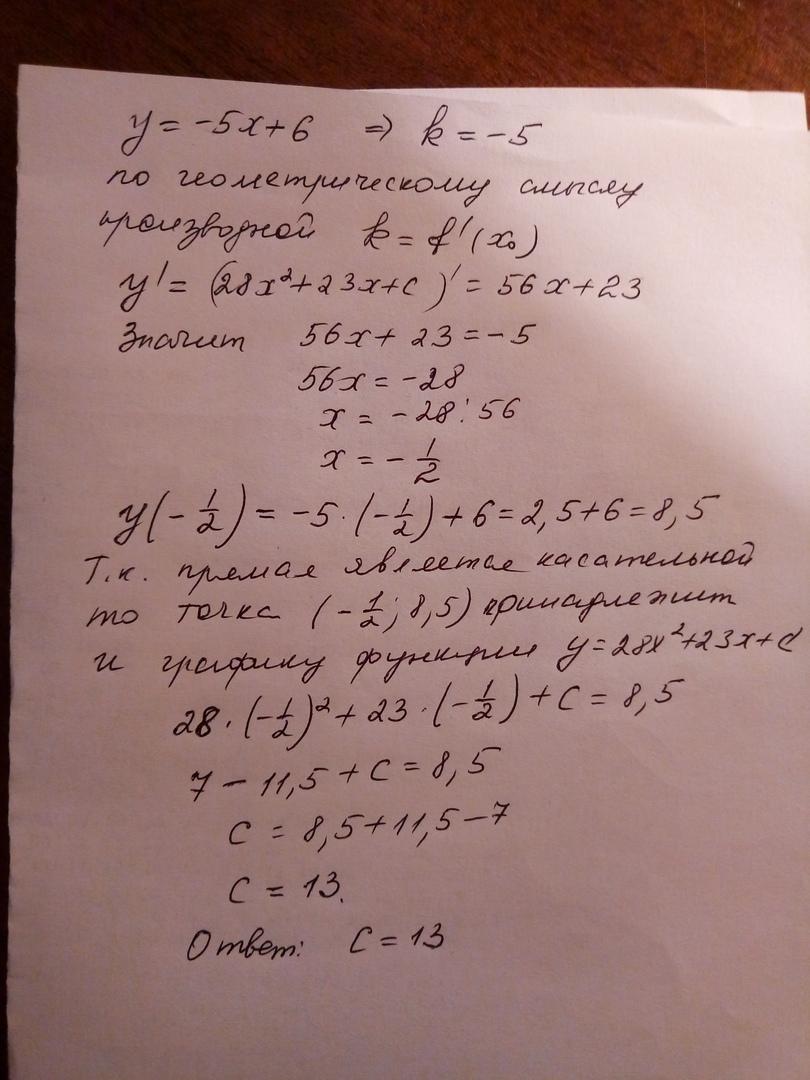 y = -5x+6 ⇒ k = -5
по геометрическому смыслу
производной k = f'(x₀)
y' = (28x²+23x+c)' = 56x+23
Значит 56x + 23 = -5
56x = -28
x = -28 : 56
x = - 1/2
y(- 1/2) = -5 · (- 1/2) + 6 = 2,5+6 = 8,5
Т.к. прямая является касательной
то точка (- 1/2; 8,5) принадлежит
и графику функции y = 28x²+23x+c
28 · (- 1/2)² + 23 · (- 1/2) + c = 8,5
7 - 11,5 + c = 8,5
c = 8,5+11,5-7
c = 13.
Ответ: c = 13